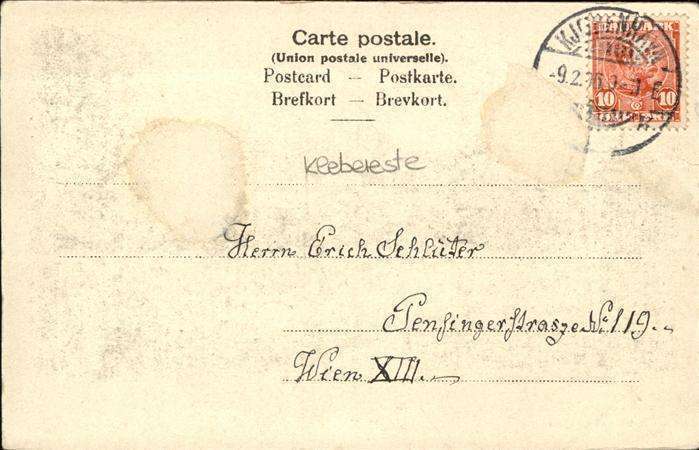 Carte postale.
(Union postale universelle).
Postcard — Postkarte.
Brefkort — Brevkort.
KJØBENHAVN
9.2.
10 10
Kleebereste
Herrn Erich Schlüter
Penzingerstrasze No 119.
Wien XIII.